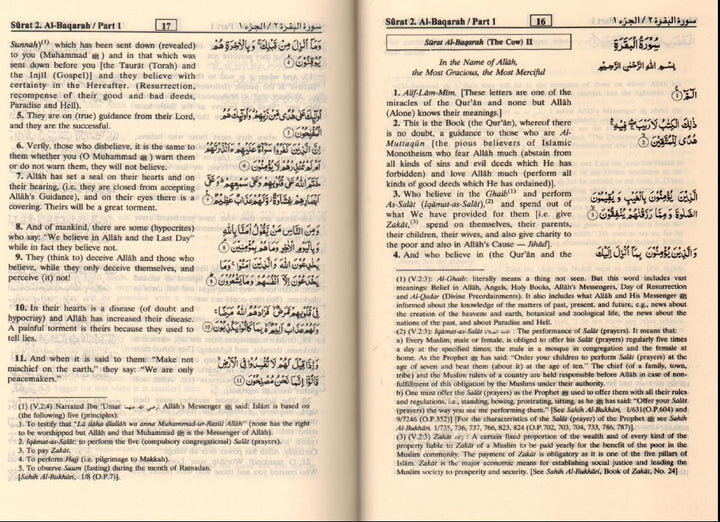 Sûrat 2. Al-Baqarah / Part 1
16
سورة البقرة ٢ / الجزء ١
Sûrat Al-Baqarah (The Cow) II
In the Name of Allâh,
the Most Gracious, the Most Merciful
1. Alif-Lâm-Mîm. [These letters are one of the
miracles of the Qur'ân and none but Allâh
(Alone) knows their meanings.]
2. This is the Book (the Qur'ân), whereof there
is no doubt, a guidance to those who are Al-
Muttaqûn [the pious believers of Islamic
Monotheism who fear Allâh much (abstain from
all kinds of sins and evil deeds which He has
forbidden) and love Allâh much (perform all
kinds of good deeds which He has ordained)].
3. Who believe in the Ghaib(1) and perform
As-Salât (Iqâmat-as-Salât),(2) and spend out of
what We have provided for them [i.e. give
Zakât,(3) spend on themselves, their parents,
their children, their wives, and also give charity to
the poor and also in Allâh's Cause — Jihâd].
4. And who believe in (the Qur'ân and the
سُورَةُ الْبَقَرَةِ
بِسْمِ اللَّهِ الرَّحْمَٰنِ الرَّحِيمِ
الٓمٓ ١
ذَٰلِكَ الْكِتَٰبُ لَا رَيْبَ فِيهِ
هُدًى لِّلْمُتَّقِينَ ٢
الَّذِينَ يُؤْمِنُونَ بِالْغَيْبِ وَيُقِيمُونَ
الصَّلَوٰةَ وَمِمَّا رَزَقْنَٰهُمْ يُنفِقُونَ ٣
وَالَّذِينَ يُؤْمِنُونَ بِمَآ أُنزِلَ إِلَيْكَ
(1) (V.2:3): Al-Ghaib: literally means a thing not seen. But this word includes vast
meanings: Belief in Allâh, Angels, Holy Books, Allâh's Messengers, Day of Resurrection
and Al-Qadar (Divine Preordainments). It also includes what Allâh and His Messenger ﷺ
informed about the knowledge of the matters of past, present, and future, e.g., news about
the creation of the heavens and earth, botanical and zoological life, the news about the
nations of the past, and about Paradise and Hell.
(2) (V.2:3): Iqâmat-as-Salât إقامة الصلاة : The performance of Salât (prayers). It means that:
a) Every Muslim, male or female, is obliged to offer his Salât (prayers) regularly five times
a day at the specified times; the male in a mosque in congregation and the female at
home. As the Prophet ﷺ has said: "Order your children to perform Salât (prayers) at the
age of seven and beat them (about it) at the age of ten." The chief (of a family, town,
tribe) and the Muslim rulers of a country are held responsible before Allâh in case of non-
fulfillment of this obligation by the Muslims under their authority.
b) One must offer the Salât (prayers) as the Prophet ﷺ used to offer them with all their rules
and regulations, i.e., standing, bowing, prostrating, sitting, as he ﷺ has said: "Offer your Salât
(prayers) the way you see me performing them." [See Sahih Al-Bukhâri, 1/631(O.P.604) and
9/7246 (O.P.352)] [For the characteristics of the Salât (prayer) of the Prophet ﷺ see Sahih
Al-Bukhâri, 1/735, 736, 737, 766, 823, 824 (O.P.702, 703, 704, 733, 786, 787)].
(3) (V.2:3) Zakât زكاة : A certain fixed proportion of the wealth and of every kind of the
property liable to Zakât of a Muslim to be paid yearly for the benefit of the poor in the
Muslim community. The payment of Zakât is obligatory as it is one of the five pillars of
Islâm. Zakât is the major economic means for establishing social justice and leading the
Muslim society to prosperity and security. [See Sahih Al-Bukhâri, Book of Zakât, No. 24]
Sûrat 2. Al-Baqarah / Part 1
17
سورة البقرة ٢ / الجزء ١
Sunnah)(1) which has been sent down (revealed)
to you (Muhammad ﷺ) and in that which was
sent down before you [the Taurât (Torah) and
the Injîl (Gospel)] and they believe with
certainty in the Hereafter. (Resurrection,
recompense of their good and bad deeds,
Paradise and Hell).
5. They are on (true) guidance from their Lord,
and they are the successful.
6. Verily, those who disbelieve, it is the same to
them whether you (O Muhammad ﷺ) warn them
or do not warn them, they will not believe.
7. Allâh has set a seal on their hearts and on
their hearing, (i.e. they are closed from accepting
Allâh's Guidance), and on their eyes there is a
covering. Theirs will be a great torment.
8. And of mankind, there are some (hypocrites)
who say: "We believe in Allâh and the Last Day"
while in fact they believe not.
9. They (think to) deceive Allâh and those who
believe, while they only deceive themselves, and
perceive (it) not!
10. In their hearts is a disease (of doubt and
hypocrisy) and Allâh has increased their disease.
A painful torment is theirs because they used to
tell lies.
11. And when it is said to them: "Make not
mischief on the earth," they say: "We are only
peacemakers."
وَمَآ أُنزِلَ مِن قَبْلِكَ وَبِالْآخِرَةِ هُمْ
يُوقِنُونَ ٤
أُو۟لَٰٓئِكَ عَلَىٰ هُدًى مِّن رَّبِّهِمْ وَأُو۟لَٰٓئِكَ هُمُ
الْمُفْلِحُونَ ٥
إِنَّ الَّذِينَ كَفَرُوا۟ سَوَآءٌ عَلَيْهِمْ ءَأَنذَرْتَهُمْ
أَمْ لَمْ تُنذِرْهُمْ لَا يُؤْمِنُونَ ٦
خَتَمَ اللَّهُ عَلَىٰ قُلُوبِهِمْ وَعَلَىٰ سَمْعِهِمْ وَعَلَىٰٓ
أَبْصَٰرِهِمْ غِشَٰوَةٌ وَلَهُمْ عَذَابٌ عَظِيمٌ ٧
وَمِنَ النَّاسِ مَن يَقُولُ ءَامَنَّا بِاللَّهِ
وَبِالْيَوْمِ الْآخِرِ وَمَا هُم بِمُؤْمِنِينَ ٨
يُخَٰدِعُونَ اللَّهَ وَالَّذِينَ ءَامَنُوا۟ وَمَا
يَخْدَعُونَ إِلَّآ أَنفُسَهُمْ وَمَا يَشْعُرُونَ ٩
فِى قُلُوبِهِم مَّرَضٌ فَزَادَهُمُ اللَّهُ مَرَضًا
وَلَهُمْ عَذَابٌ أَلِيمٌۢ بِمَا كَانُوا۟ يَكْذِبُونَ ١٠
وَإِذَا قِيلَ لَهُمْ لَا تُفْسِدُوا۟ فِى الْأَرْضِ
قَالُوٓا۟ إِنَّمَا نَحْنُ مُصْلِحُونَ ١١
(1) (V.2:4) Narrated Ibn 'Umar رضي الله عنهما: Allâh's Messenger ﷺ said: Islâm is based on
(the following) five (principles):
1. To testify that "Lâ ilâha illallâh wa anna Muhammad-ur-Rasûl Allâh" (none has the right
to be worshipped but Allâh and that Muhammad ﷺ is the Messenger of Allâh).
2. Iqâmat-as-Salât: to perform the five (compulsory congregational) Salât (prayers).
3. To pay Zakât.
4. To perform Hajj (i.e. pilgrimage to Makkah).
5. To observe Saum (fasting) during the month of Ramadan.
[Sahih Al-Bukhâri, 1/8 (O.P.7)].